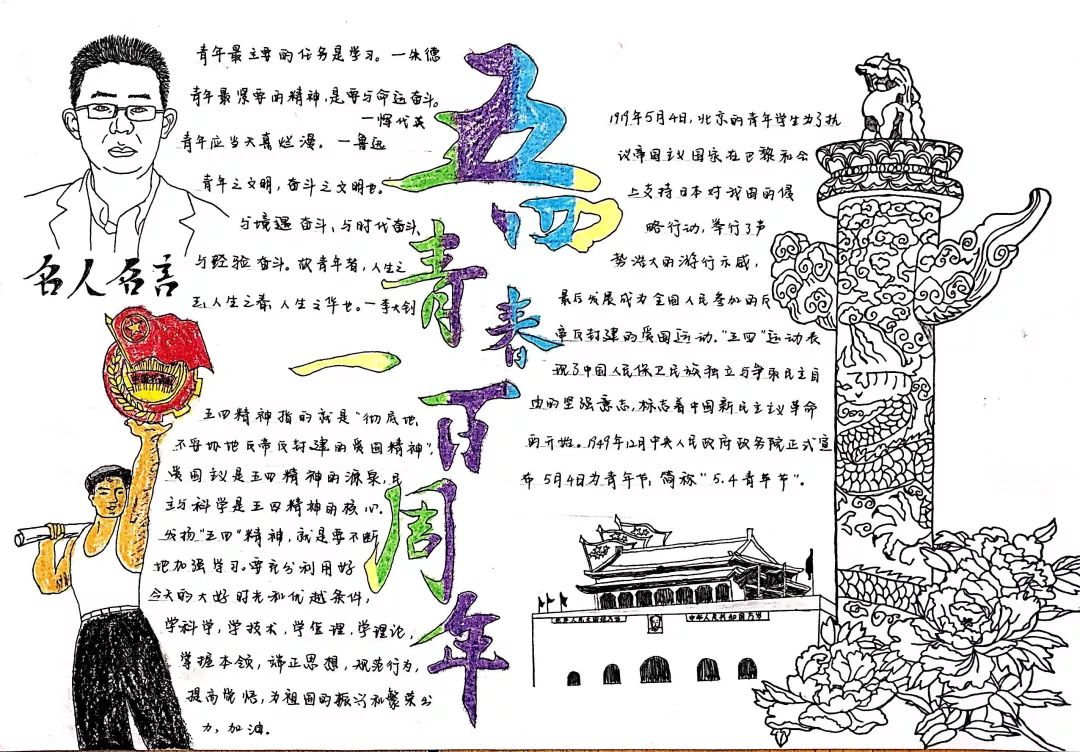 青年最主要的任务是学习。—朱德
青年最紧要的精神,是要与命运奋斗。
—恽代英
青年应当天真烂漫。—鲁迅
青年之文明,奋斗之文明也。
与境遇奋斗,与时代奋斗,
与经验奋斗。故青年者,人生之
王,人生之春,人生之华也。—李大钊
名人名言
五四
青春
一百周年
1919年5月4日,北京的青年学生为了抗
议帝国主义国家在巴黎和会
上支持日本对我国的侵
略行动,举行了声
势浩大的游行示威,
最后发展成为全国人民参加的反
帝反封建的爱国运动。"五四"运动表
现了中国人民保卫民族独立与争取民主自
由的坚强意志,标志着中国新民主主义革命
的开始。1949年12月中央人民政府政务院正式宣
布5月4日为青年节,简称"5.4青年节"。
五四精神指的就是"彻底地、
不妥协地反帝反封建的爱国精神",
爱国议是五四精神的源泉,民
主与科学是五四精神的核心。
发扬"五四"精神,就是要不断
地加强学习。要充分利用好
今天的大好时光和优越条件,
学科学,学技术,学管理,学理论,
掌握本领,端正思想,规范行为,
提高觉悟,为祖国的振兴和繁荣出
力,加油。
中华人民共和国万岁